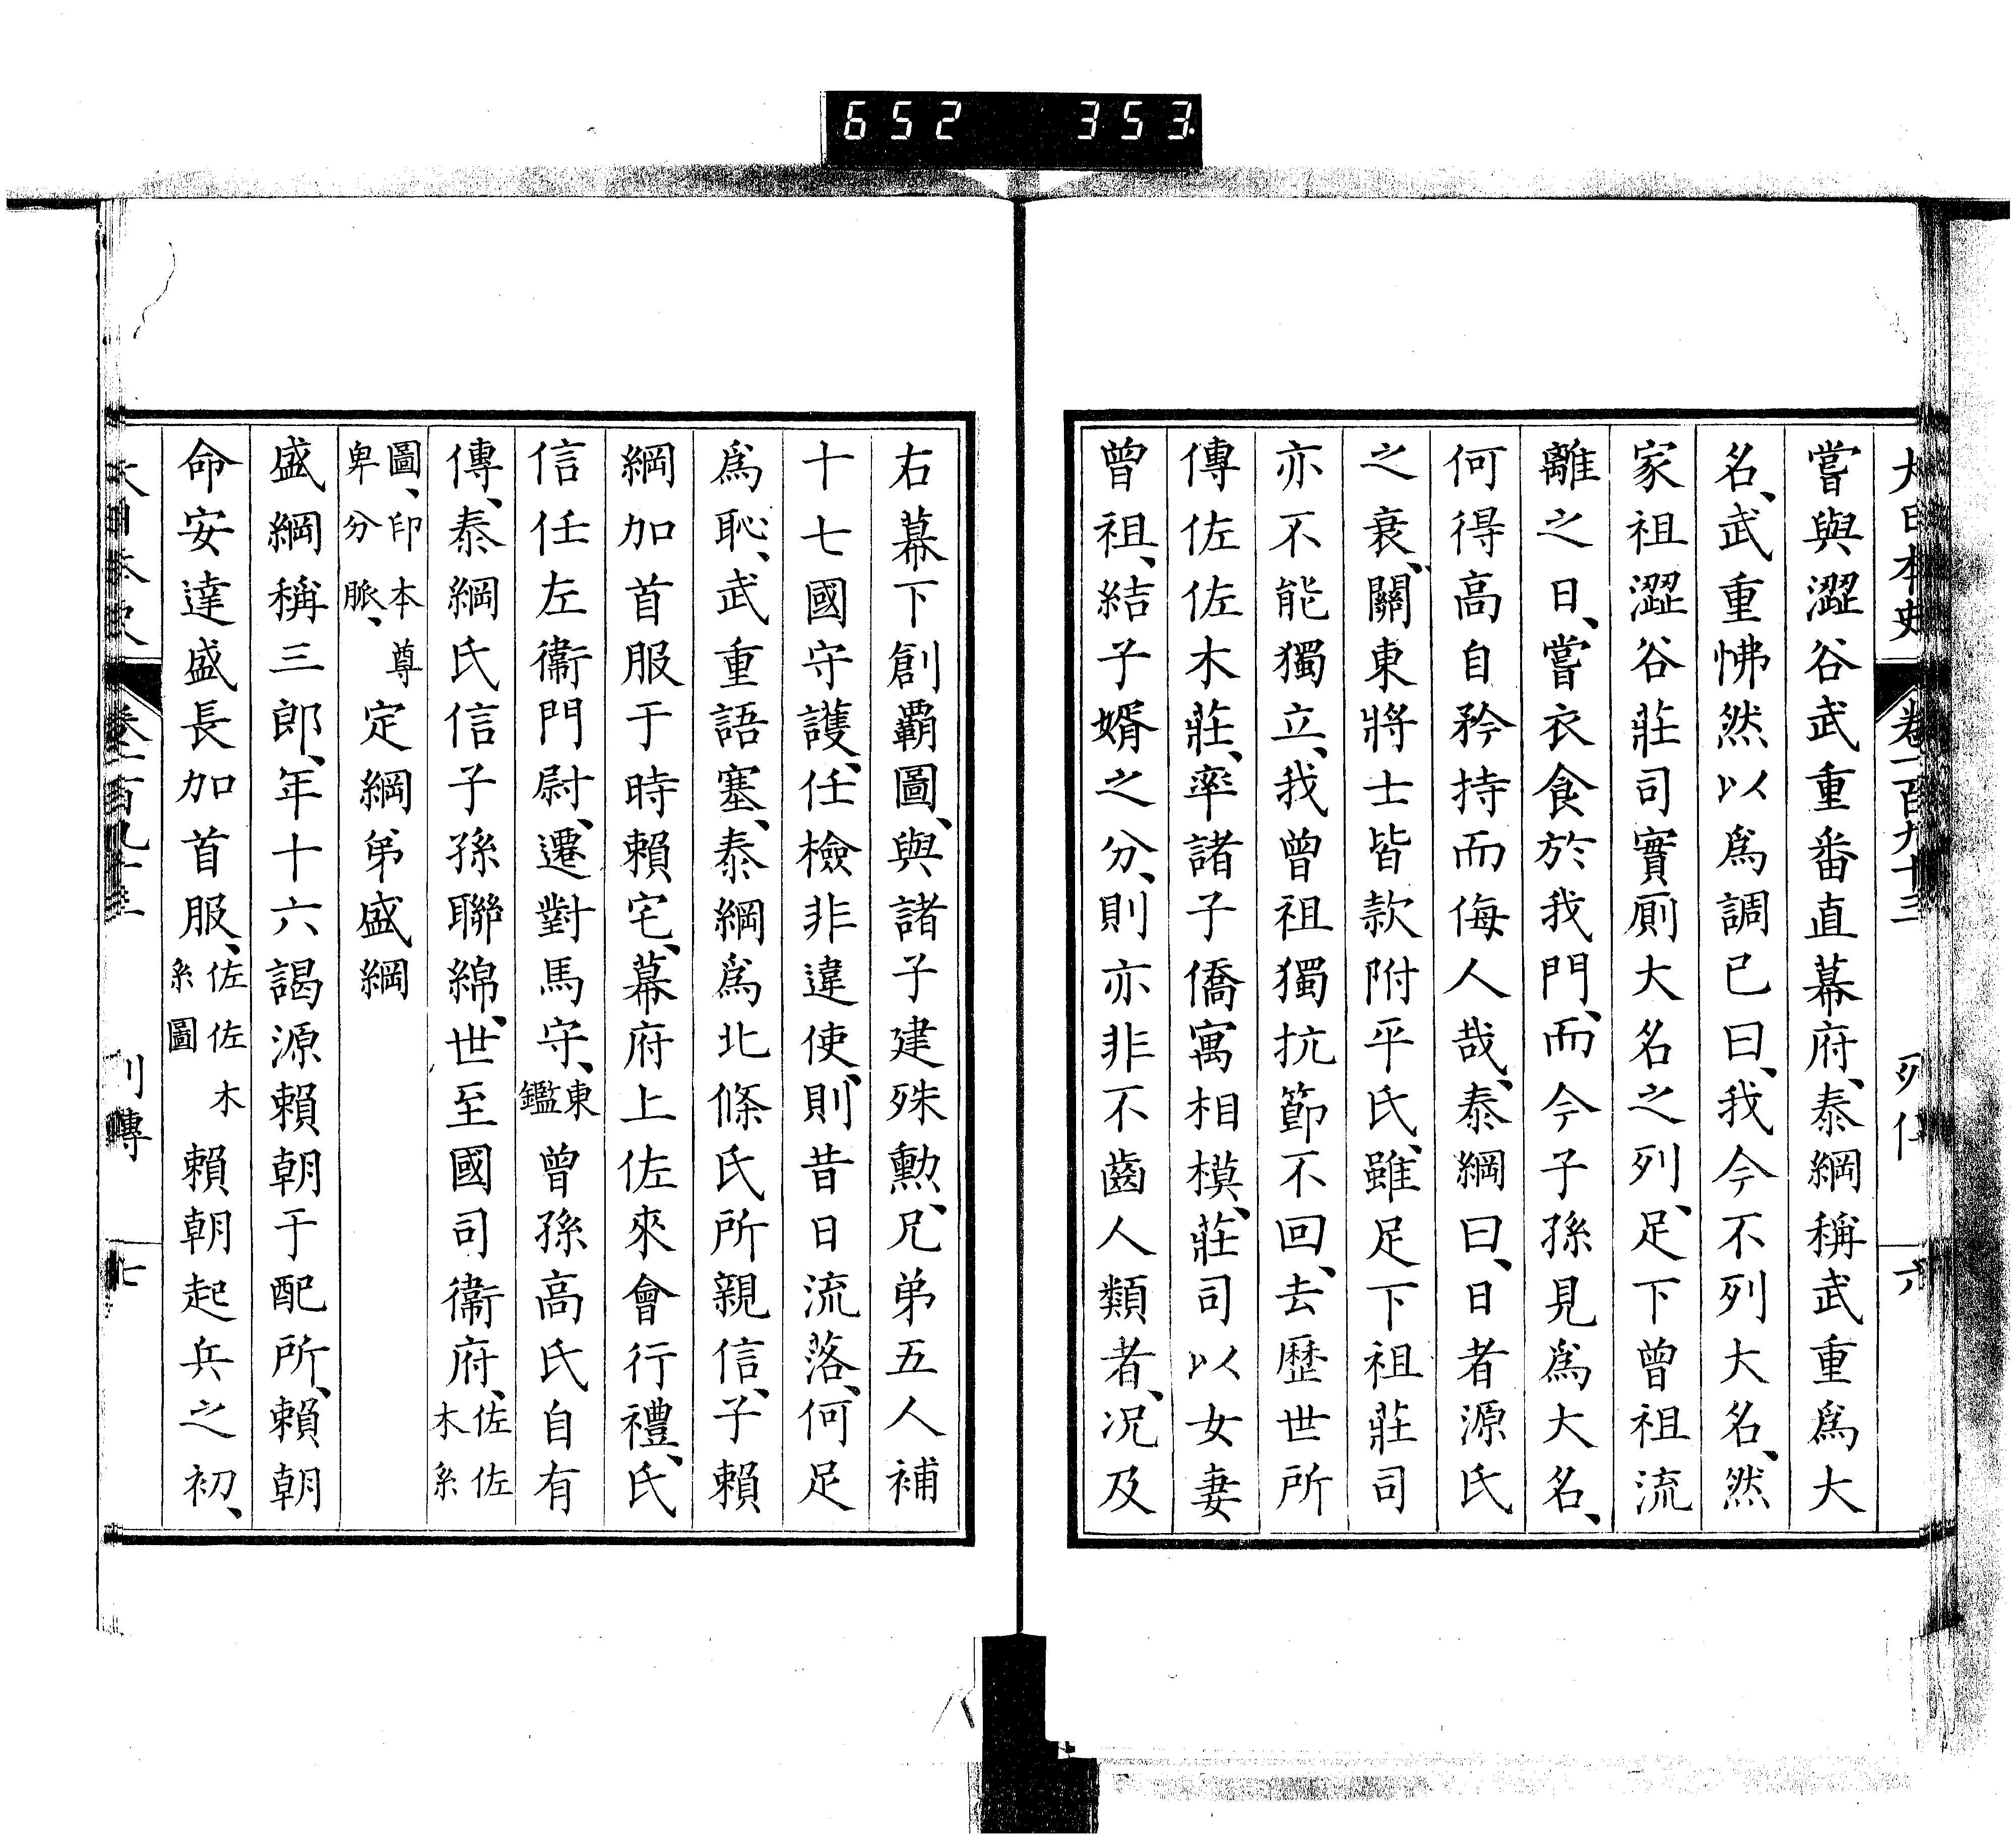 652 353
大日本史 卷一百九十三 列傳 六
嘗與澀谷武重番直幕府、泰綱稱武重爲大
名、武重怫然以爲調己曰、我今不列大名、然
家祖澀谷莊司實廁大名之列、足下曾祖流
離之日、嘗衣食於我門、而今子孫見爲大名、
何得高自矜持而侮人哉、泰綱曰、日者源氏
之衰、關東將士皆款附平氏、雖足下祖莊司
亦不能獨立、我曾祖獨抗節不回、去歷世所
傳佐佐木莊、率諸子僑寓相模、莊司以女妻
曾祖、結子婿之分、則亦非不齒人類者、况及
右幕下創霸圖、與諸子建殊勲、兄弟五人補
十七國守護、任檢非違使、則昔日流落、何足
爲恥、武重語塞、泰綱爲北條氏所親信、子賴
綱加首服于時賴宅、幕府上佐來會行禮、氏
信任左衞門尉、遷對馬守、東鑑曾孫高氏自有
傳、泰綱氏信子孫聯綿、世至國司衞府、佐佐木系
圖、印本尊卑分脈、定綱弟盛綱
盛綱稱三郎、年十六謁源賴朝于配所、賴朝
命安達盛長加首服、佐佐木系圖賴朝起兵之初、
大日本史 卷一百九十三 列傳 七